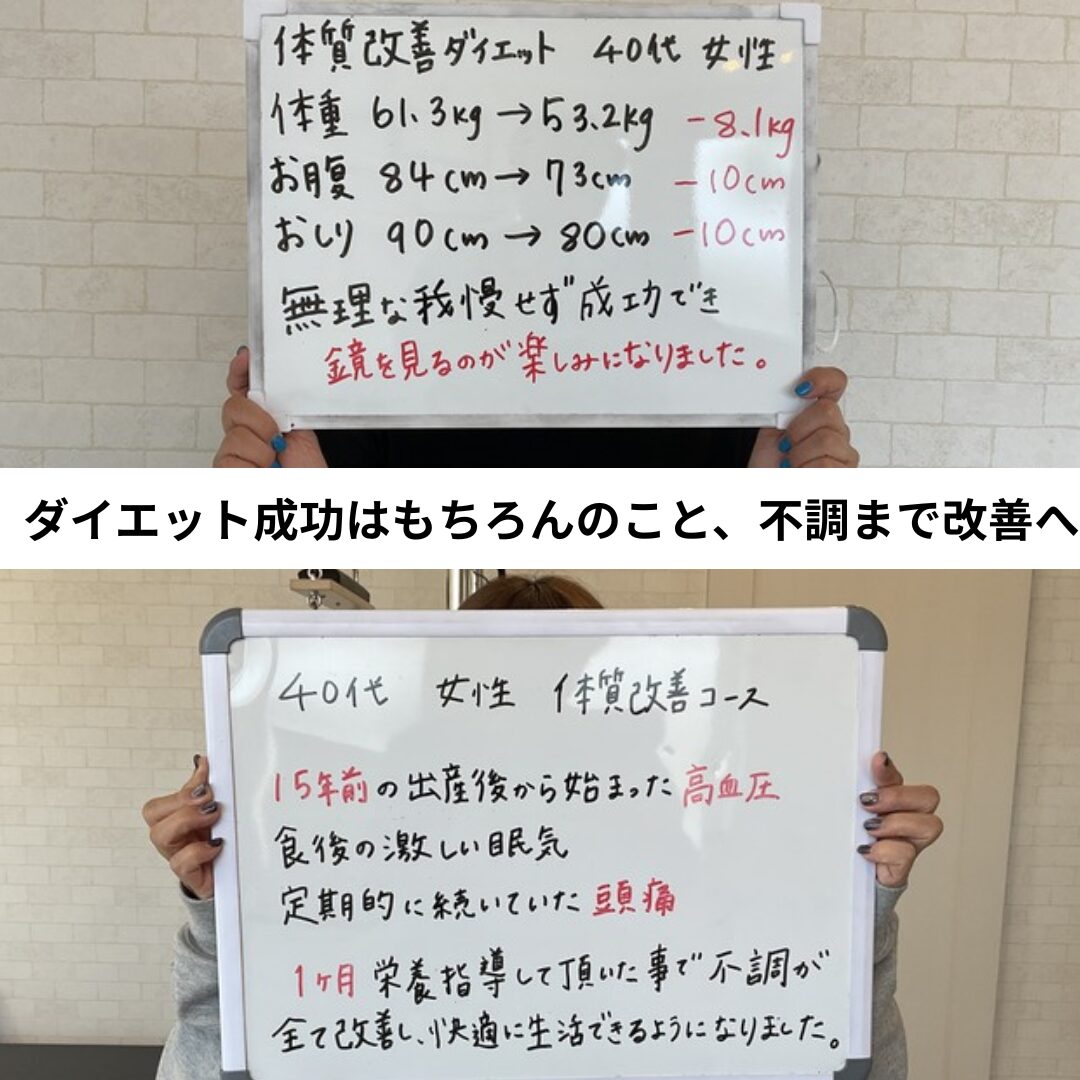 体質改善ダイエット 40代 女性
体重 61.3kg→53.2kg -8.1kg
お腹 84cm→73cm -10cm
おしり 90cm→80cm -10cm
無理な我慢せず成功でき
鏡を見るのが楽しみになりました。
ダイエット成功はもちろんのこと、不調まで改善へ
40代 女性 体質改善コース
15年前の出産後から始まった高血圧
食後の激しい眠気
定期的に続いていた頭痛
1ヶ月栄養指導して頂いた事で不調が
全て改善し、快適に生活できるようになりました。